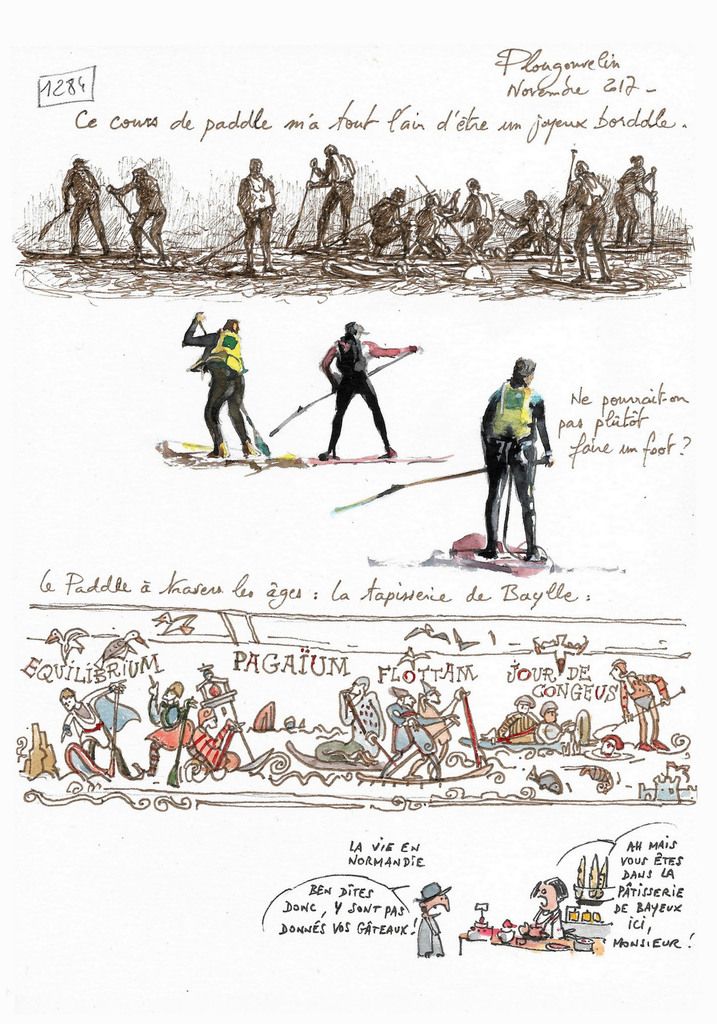 1284
Plougonvelin
Novembre 2017 -
Ce cours de paddle m'a tout l'air d'être un joyeux borddle.
Ne pourrait-on
pas plutôt
faire un foot ?
le Paddle à travers les âges : la tapisserie de Baylle :
EQUILIBRIUM
PAGAÏUM
FLOTTAM
JOUR DE
CONGEUS
LA VIE EN
NORMANDIE
BEN DÎTES
DONC, Y SONT PAS
DONNÉS VOS GÂTEAUX !
AH MAIS
VOUS ÊTES
DANS LA
PÂTISSERIE
DE BAYEUX
ICI,
MONSIEUR !